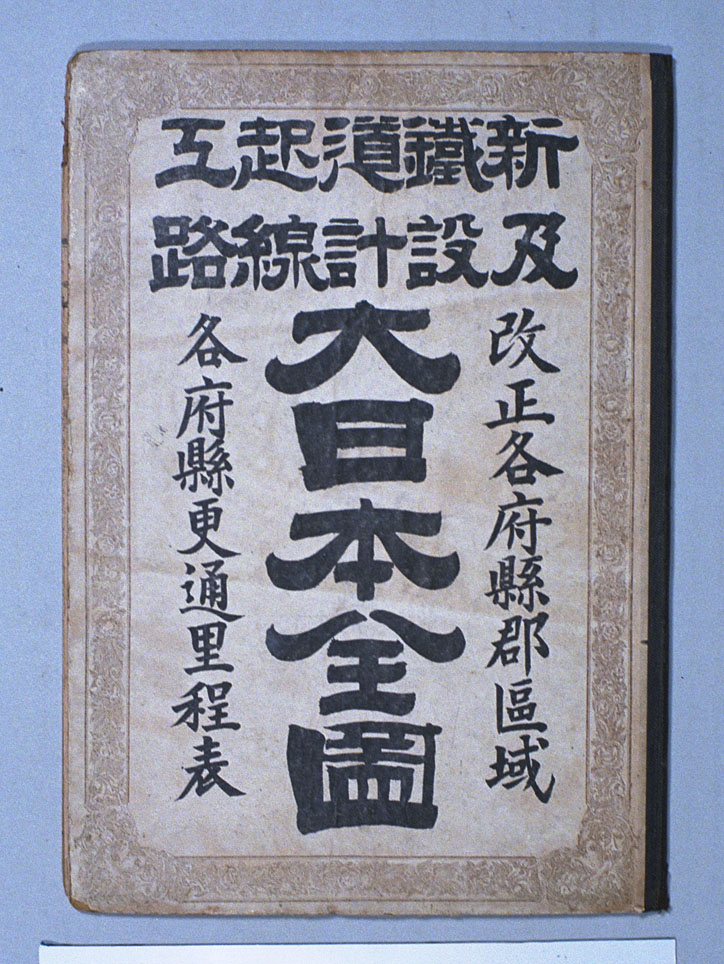 新鐵道起工
及設計線路
改正各府縣郡區域
大日本全圖
各府縣更通里程表